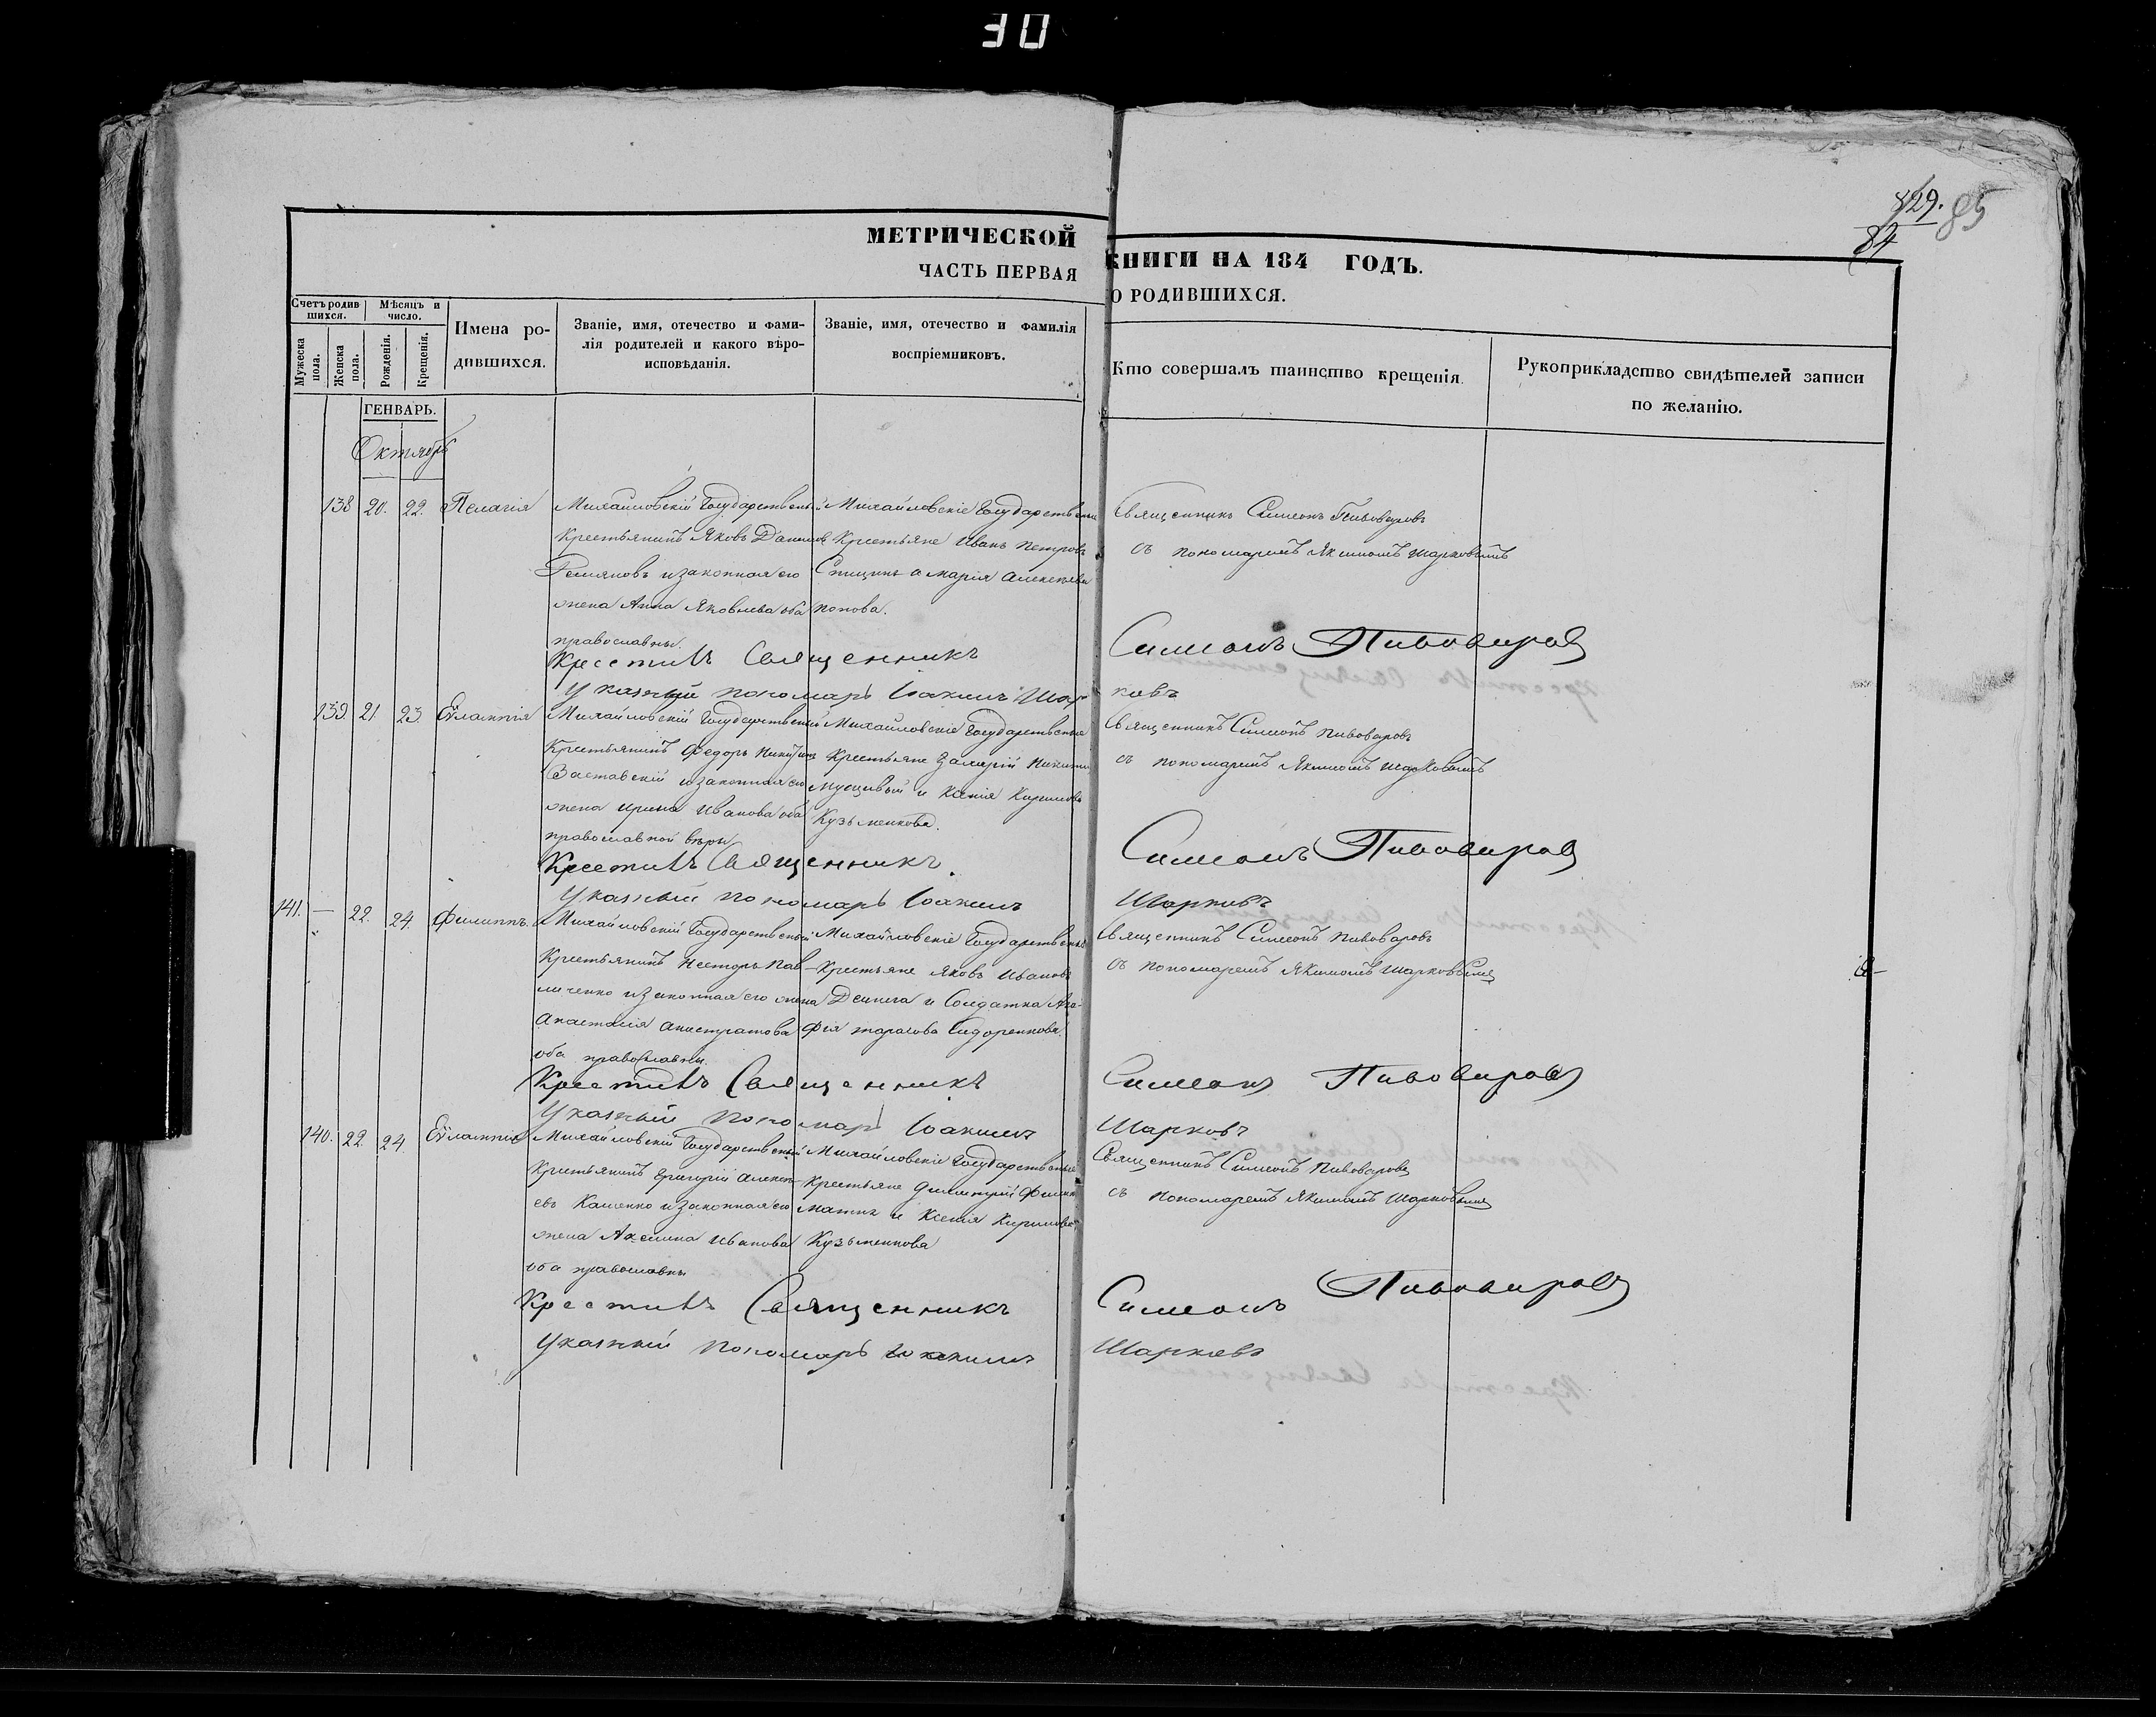 30
829. 85
84
МЕТРИЧЕСКОЙ КНИГИ НА 184 ГОДЪ.
ЧАСТЬ ПЕРВАЯ О РОДИВШИХСЯ.
Счетъ родившихся.
Мѣсяцъ и число.
Мужеска пола.
Женска пола.
Рожденія.
Крещенія.
Имена родившихся.
Званіе, имя, отечество и фамилія родителей и какого вѣроисповѣданія.
Званіе, имя, отечество и фамилія воспріемниковъ.
Кто совершалъ таинство крещенія.
Рукоприкладство свидѣтелей записи по желанію.
ГЕНВАРЬ.
Октябрь
138 20. 22. Пелагія
Михайловскій Государственный
Крестьянинъ Яковъ Данилов
и законная его
жена Анна Яковлева оба
православны.
Михайловскіе Государственые
Крестьяне Иванъ Петровъ
Спицинъ и Марія Алексѣева
Попова.
Священникъ Симеонъ Пивоваровъ
съ пономаремъ Якимомъ Шарковымъ
Крестилъ Священникъ Симеонъ Пивоваровъ
Указный пономарь Іоакимъ Шарковъ
139. 21. 23 Евлампія
Михайловскій Государственный
Крестьянинъ Федоръ Никитинъ
Заставскій и законная его
жена Ирина Иванова оба
православной вѣры
Михайловскіе Государственые
Крестьяне
и Ксенія Кирилова
Кузьменкова.
Священникъ Симеонъ Пивоваровъ
съ пономаремъ Якимомъ Шарковымъ
Крестилъ Священникъ Симеонъ Пивоваровъ
Указный пономарь Іоакимъ Шарковъ
141. — 22. 24. Филиппъ.
Михайловскій Государственый
Крестьянинъ Несторъ Павличенко и законная его жена
Анастасія Анистратова
оба православны.
Михайловскіе Государственые
Крестьяне Яковъ Ивановъ
и Солдатка Агафія Тарасова Сидоренкова.
Священникъ Симеонъ Пивоваровъ
съ пономаремъ Якимомъ Шарковымъ
Крестилъ Священникъ Симеонъ Пивоваровъ
Указный пономарь Іоакимъ Шарковъ
140. 22. 24. Евлампія
Михайловскій Государственый
Крестьянинъ Григорій Алексѣевъ Каменко и законная его
жена Аксинія Иванова
оба православны
Михайловскіе Государственые
Крестьяне Димитрій
и Ксенія Кирилова
Кузьменкова
Священникъ Симеонъ Пивоваровъ
съ пономаремъ Якимомъ Шарковымъ
Крестилъ Священникъ Симеонъ Пивоваровъ
Указный пономарь Іоакимъ Шарковъ